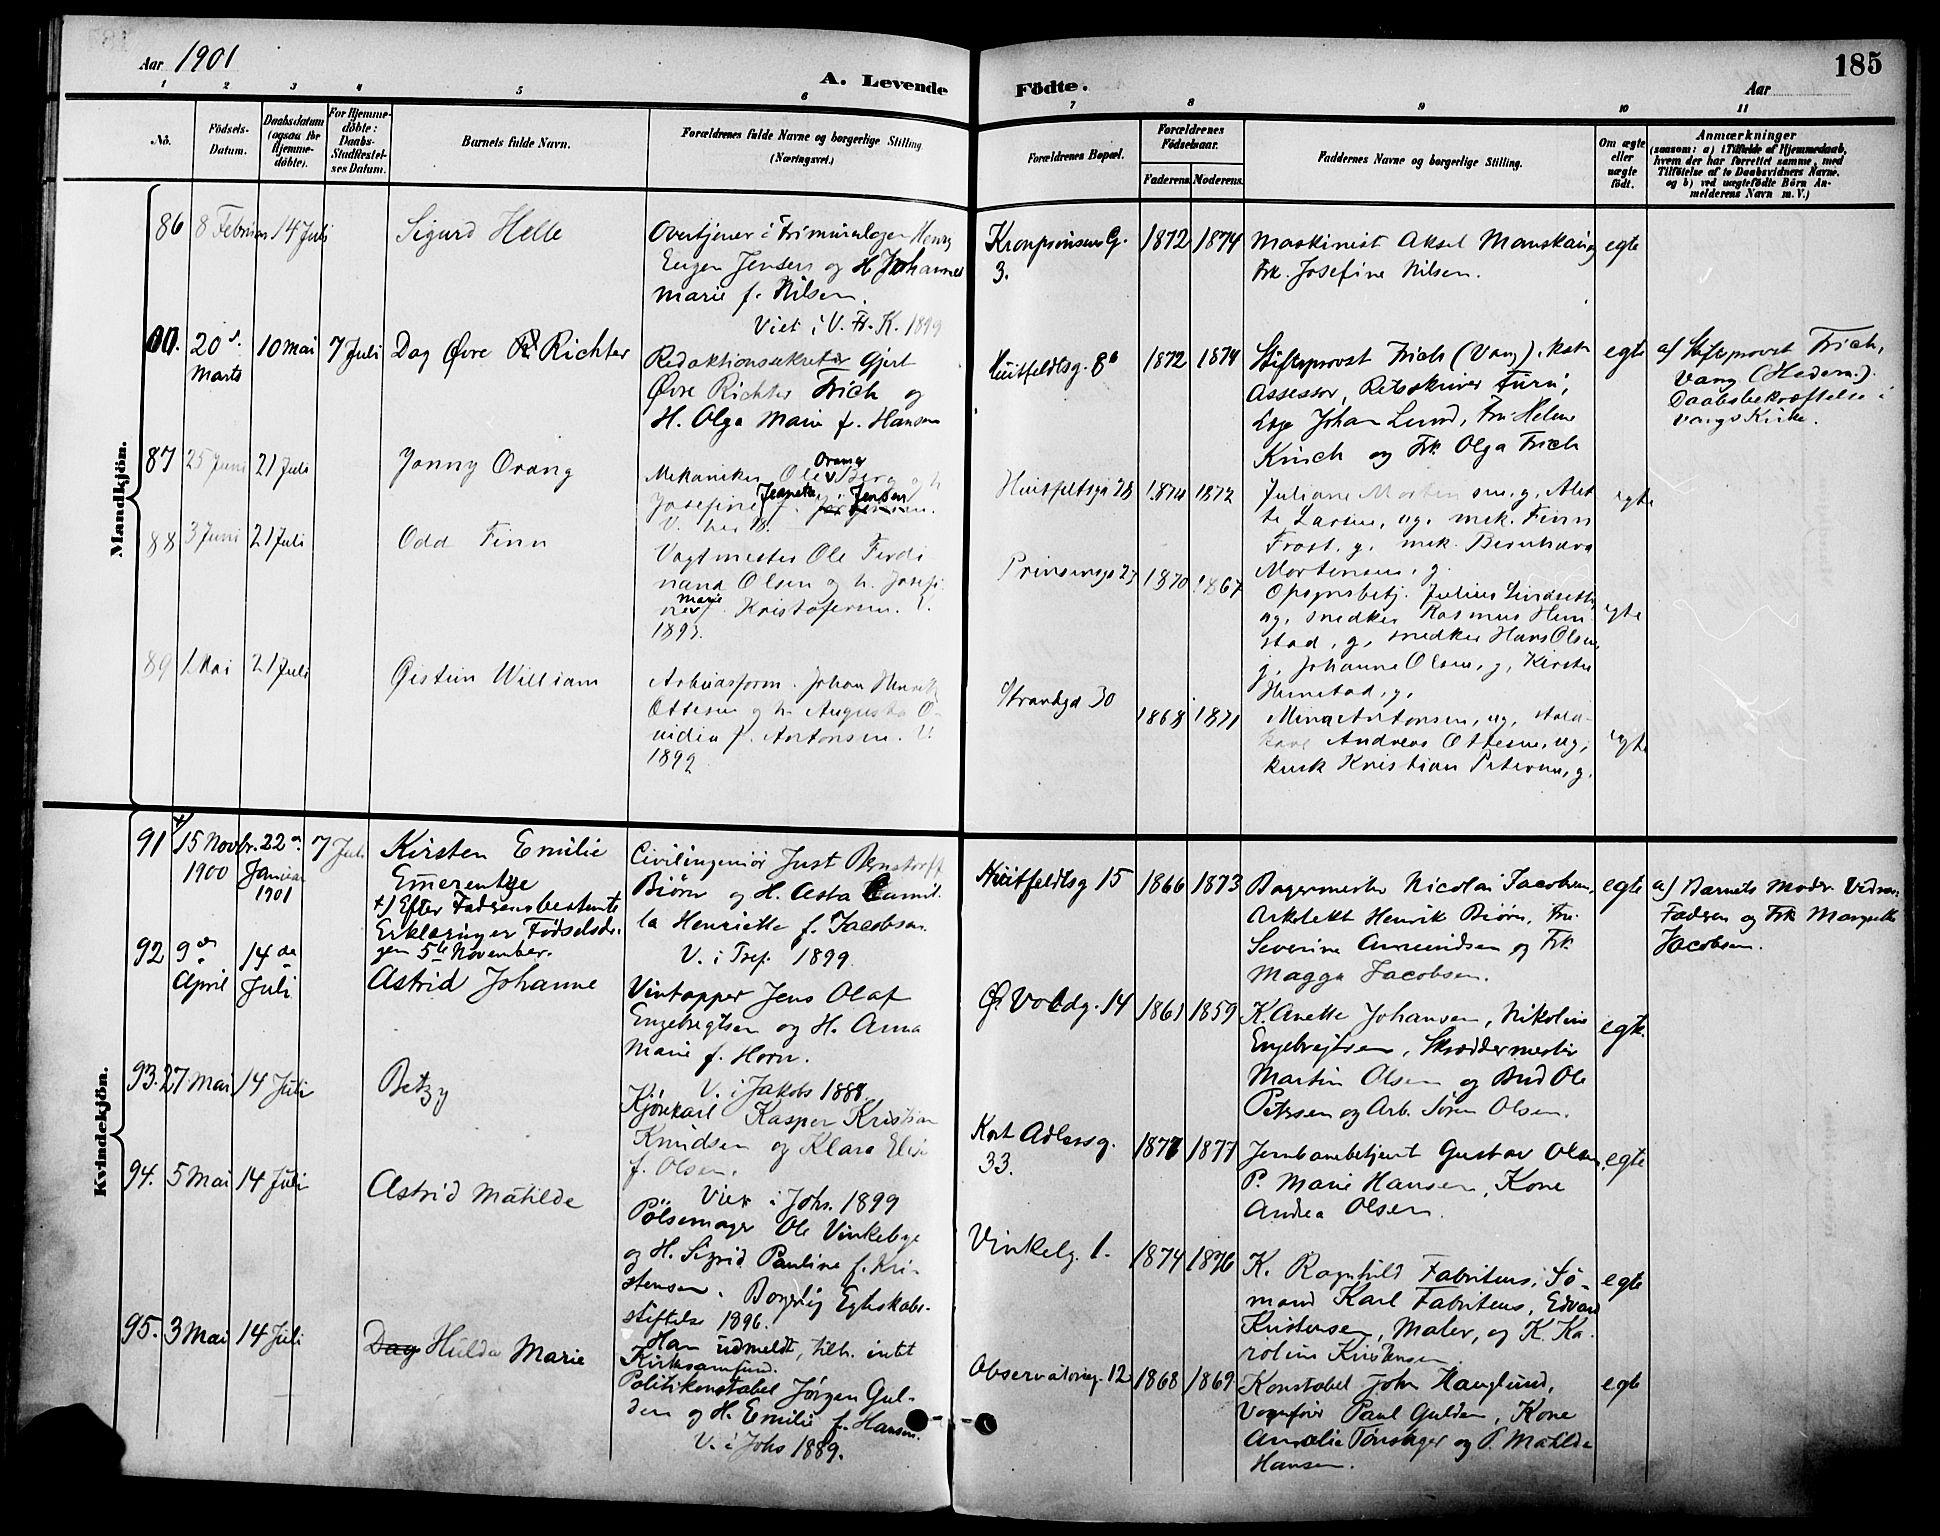 Aar 1901
A. Levende
Födte.
Aar
185
1 2 3 4 5 6
7 8 9 10 11
No.
Födsels-
Datum.
Daabsdatum
(ogsaa for
Hjemme-
döbte).
For Hjemme-
döbte:
Daabs-
Stadfæstel-
ses Datum.
Barnets fulde Navn.
Forældrenes fulde Navne og borgerlige Stilling
(Næringsvei.)
Forældrenes Bopæl.
Forældrenes
Födselsaar.
Faderens. Moderens.
Faddernes Navne og borgerlige Stilling.
Om ægte
eller
uægte
födt.
Anmærkninger
(saasom: a) i Tilfælde af Hjemmedaab,
hvem der har forrettet samme, med
Tilföielse af to Daabsvidners Navne,
og b) ved uægtefödte Börn An-
melderens Navn m. V.)
Mandkjön.
86 8 Februar 14 Juli
Sigurd Helle
Overtjener i Frimurerlogen Henry
Eugen Jensen og H. Johanne
Marie f. Nilsen.
Viet i V. Fr. K. 1899
Kronprinsens G.
3.
1872 1874
Maskinist Aksel
Frk. Josefine Nilsen.
egte
20 d.
Marts
10 Mai 7 Juli
Dag Øvre Richter
Redaktionssekretær Gjert
Øvre Richter Frich og
H. Olga Marie f. Hansen
Huitfeldtsg. 8 b
1872 1874
Stiftsprovst Frich (Vang), kst.
Assessor, Retsskriver Furu,
Johan Lund, Fru Helene
Krisch og Frk. Olga Frich
egte
a) Stiftsprovst Frich,
Vang (Hedem.).
Daabsbekræftelse i
Vangs Kirke.
87 25 Juni 21 Juli
Jonny Orang
Mekaniker Ole Orang Berg og h.
Josefine Jeanette f. Jensen
V. her 18.
Huitfeltsga 28
1874 1872
Juliane Mortensen, g,
Larsen, ug, mek. Finn
Frost, g, mek. Bernhard
Mortensen, g.
egte
88 3 Juni 21 Juli
Odd Finn
Vagtmester Ole Ferdi
nand Olsen og h. Josefi
ne Marie f. Kristofersen. V.
1893.
Prinsensga 27
1870 1867
Opsynsbetj. Julius
ug, snedker Rasmus Hem
stad, g, snedker Hans Olsen,
g, Johanne Olsen, g, Kirstine
Hemstad, g,
egte
89 1 Mai 21 Juli
Øistein William
Arbeidsform. Johan Henrik
Ottesen og h. Augusta O
vidia f. Antonsen. V.
1892
Strandga 30
1868 1871
Mina Antonsen, ug, stald-
karl Andreas Ottesen, ug,
kusk Kristian Petersen, g.
egte
Kvindekjön.
91 +) 15 Novbr.
1900
22 d.
Januar
1901
7 Juli
Kirsten Emilie
Emerentze
+) Efter Faderens bestemte
Erklæring er Fødselsda-
gen 5te November.
Civilingeniør Just Bernstorff
Biørn og H. Asta Camil-
la Henriette f. Jacobsen.
V. i Tref. 1899
Huitfeldtsg 15
1866 1873
Bagermester Nicolai Jacobsen,
Arkitekt Henrik Biørn, Fru
Severine Amundsen og Frk.
Magga Jacobsen.
egte
a) Barnets Moder. Vidner:
Fadren og Frk Margrethe
Jacobsen.
92 9 de
April
14 de
Juli
Astrid Johanne
Vintapper Jens Olaf
Engebregtsen og H. Anna
Marie f. Horn.
V. i Jakobs 1888.
Ø. Voldg. 14
1861 1859
K. Anette Johansen, Nikoline
Engebregtsen, Skræddermester
Martin Olsen og Bud Ole
Petersen og Arb. Søren Olsen.
egte
93. 27 Mai 14 Juli
Betzy
Kjørekarl Kasper Kristian
Knudsen og Klara Elise
f. Olsen.
Viet i Johs. 1899
Kort Adlersg.
33.
1877 1877
Jernbanebetjent Gustav Olsen,
P. Marie Hansen, Kone
Andrea Olsen.
egte
94. 5 Mai 14 Juli
Astrid Matilde
Pölsemager Ole Vinkelbye
og H. Sigrid Pauline f. Kri-
stensen. Borgerlig Egteskabs-
stiftelse 1896.
Han udmeldt, tilh. intet
Kirkesamfund.
Vinkelg. 1.
1874 1876
K. Ragnhild Fabritius, Sö-
mand Karl Fabritius, Edvard
Kristensen, Maler, og K. Ka-
roline Kristensen.
egte
95. 3 Mai 14 Juli
Dag Hulda Marie
Politikonstabel Jørgen Gul-
den og H. Emilie f. Hansen.
V. i Johs 1889.
Observatorieg. 12
1868 1869
Konstabel John Hauglund,
Vognfører Paul Gulden, Kone
Amalie Tønsager og P. Matilde
Hansen.
egte